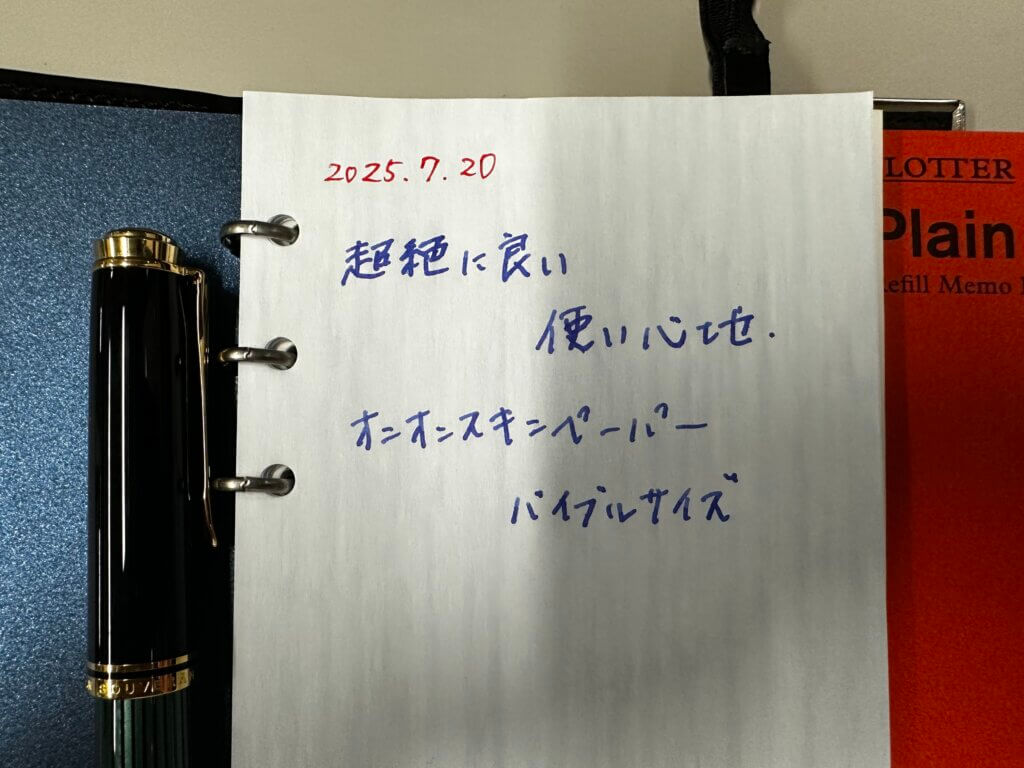 2025.7.20
超絶に良い
使い心地.
オニオンスキンペーパー
バイブルサイズ
LOTTER
Plain
efill Memo
SOUVERÄ